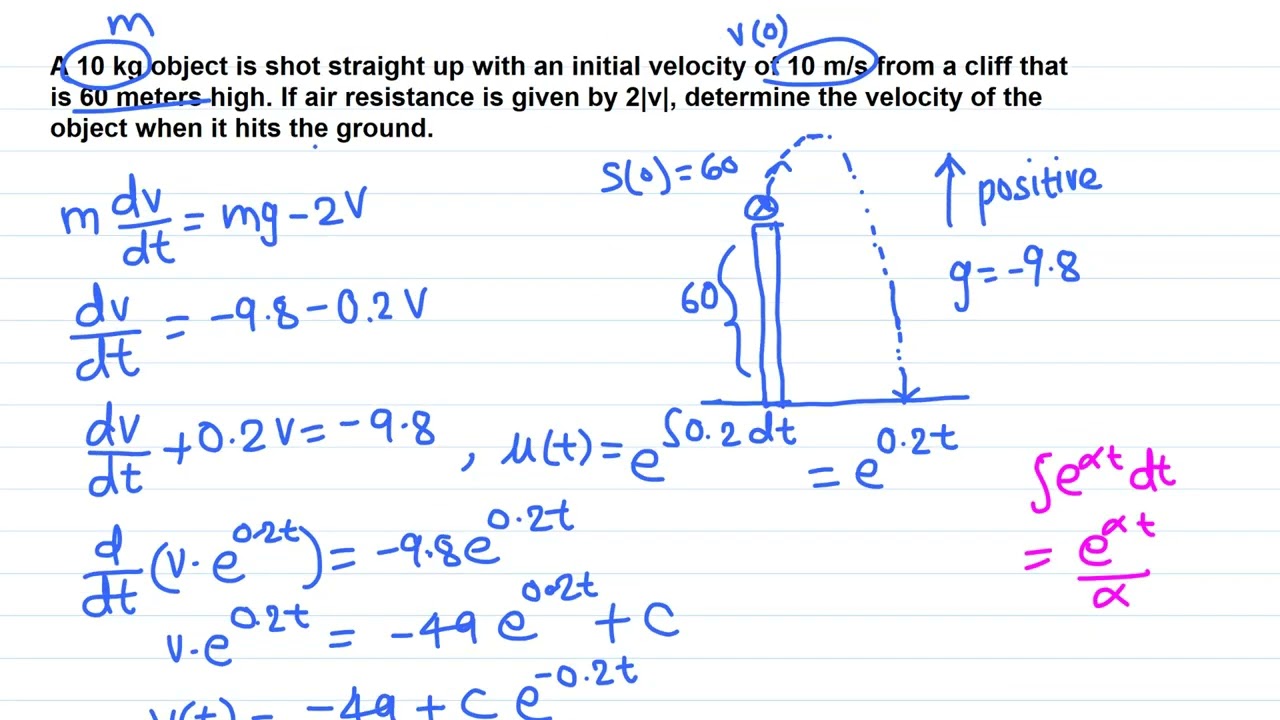 m
v(0)
A 10 kg object is shot straight up with an initial velocity of 10 m/s from a cliff that
is 60 meters high. If air resistance is given by 2|v|, determine the velocity of the
object when it hits the ground.
S(0)=60
positive
m dv/dt = mg-2V
g=-9.8
60
dv/dt = -9.8-0.2V
dv/dt +0.2V=-9.8 , μ(t)=e^∫0.2dt = e^0.2t
∫e^αt dt
= e^αt/α
d/dt (v·e^0.2t) = -9.8e^0.2t
v·e^0.2t = -49e^0.2t + C
v(t) = -49+Ce^-0.2t